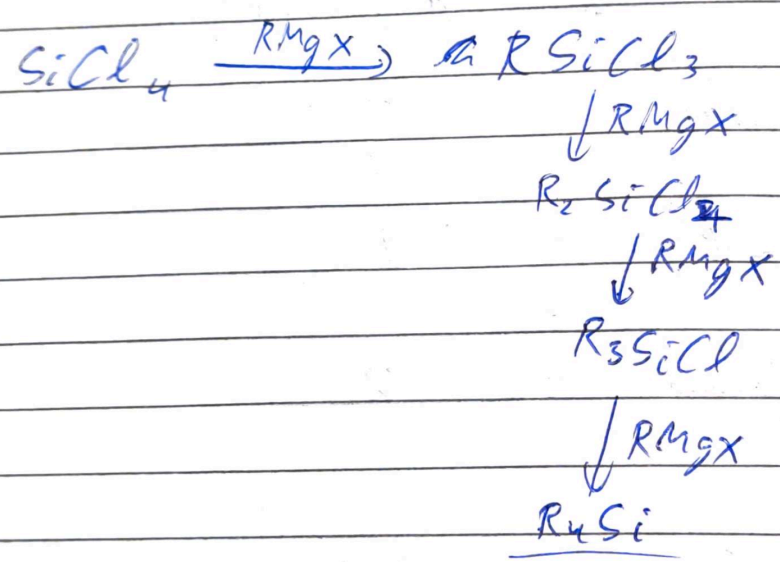 SiCl4 RMgX → RSiCl3
↓ RMgX
R2SiCl2
↓ RMgX
R3SiCl
↓ RMgX
R4Si